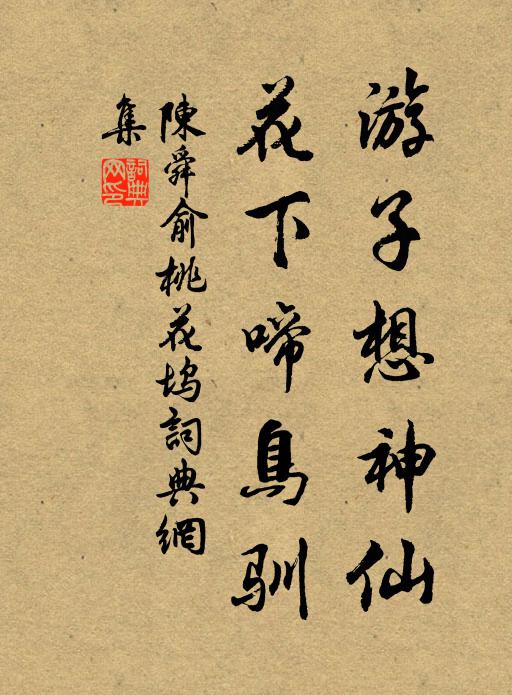 游子想神仙
花下啼鳥馴
陳舜俞桃花塢詞典網
集
詞典網印